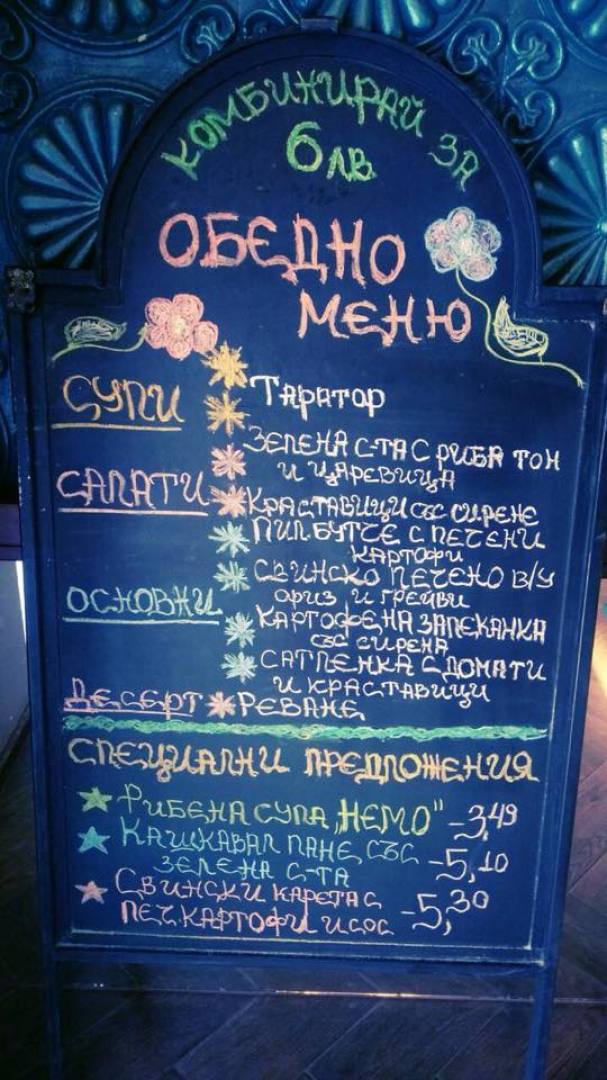 КОМБИНИРАЙ ЗА
6 лв.
ОБЕДНО
МЕНЮ
СУПИ
ТАРАТОР
САЛАТИ
ЗЕЛЕНА С-ТА С РИБА ТОН
И ЦАРЕВИЦА
КРАСТАВИЦИ СЪС СИРЕНЕ
ОСНОВНИ
ПИЛ.БУТЧЕ С ПЕЧЕНИ
КАРТОФИ
СВИНСКО ПЕЧЕНО В/У
ОРИЗ И ГРЕЙВИ
КАРТОФЕНА ЗАПЕКАНКА
СЪС СИРЕНА
САТЛЕНКА С ДОМАТИ
И КРАСТАВИЦИ
ДЕСЕРТ
РЕВАНЕ
СПЕЦИАЛНИ ПРЕДЛОЖЕНИЯ
РИБЕНА СУПА „НЕМО" - 3,49
КАШКАВАЛ ПАНЕ СЪС
ЗЕЛЕНА С-ТА - 5,10
СВИНСКИ КАРЕТА С
ПЕЧ.КАРТОФИ И СОС - 5,30